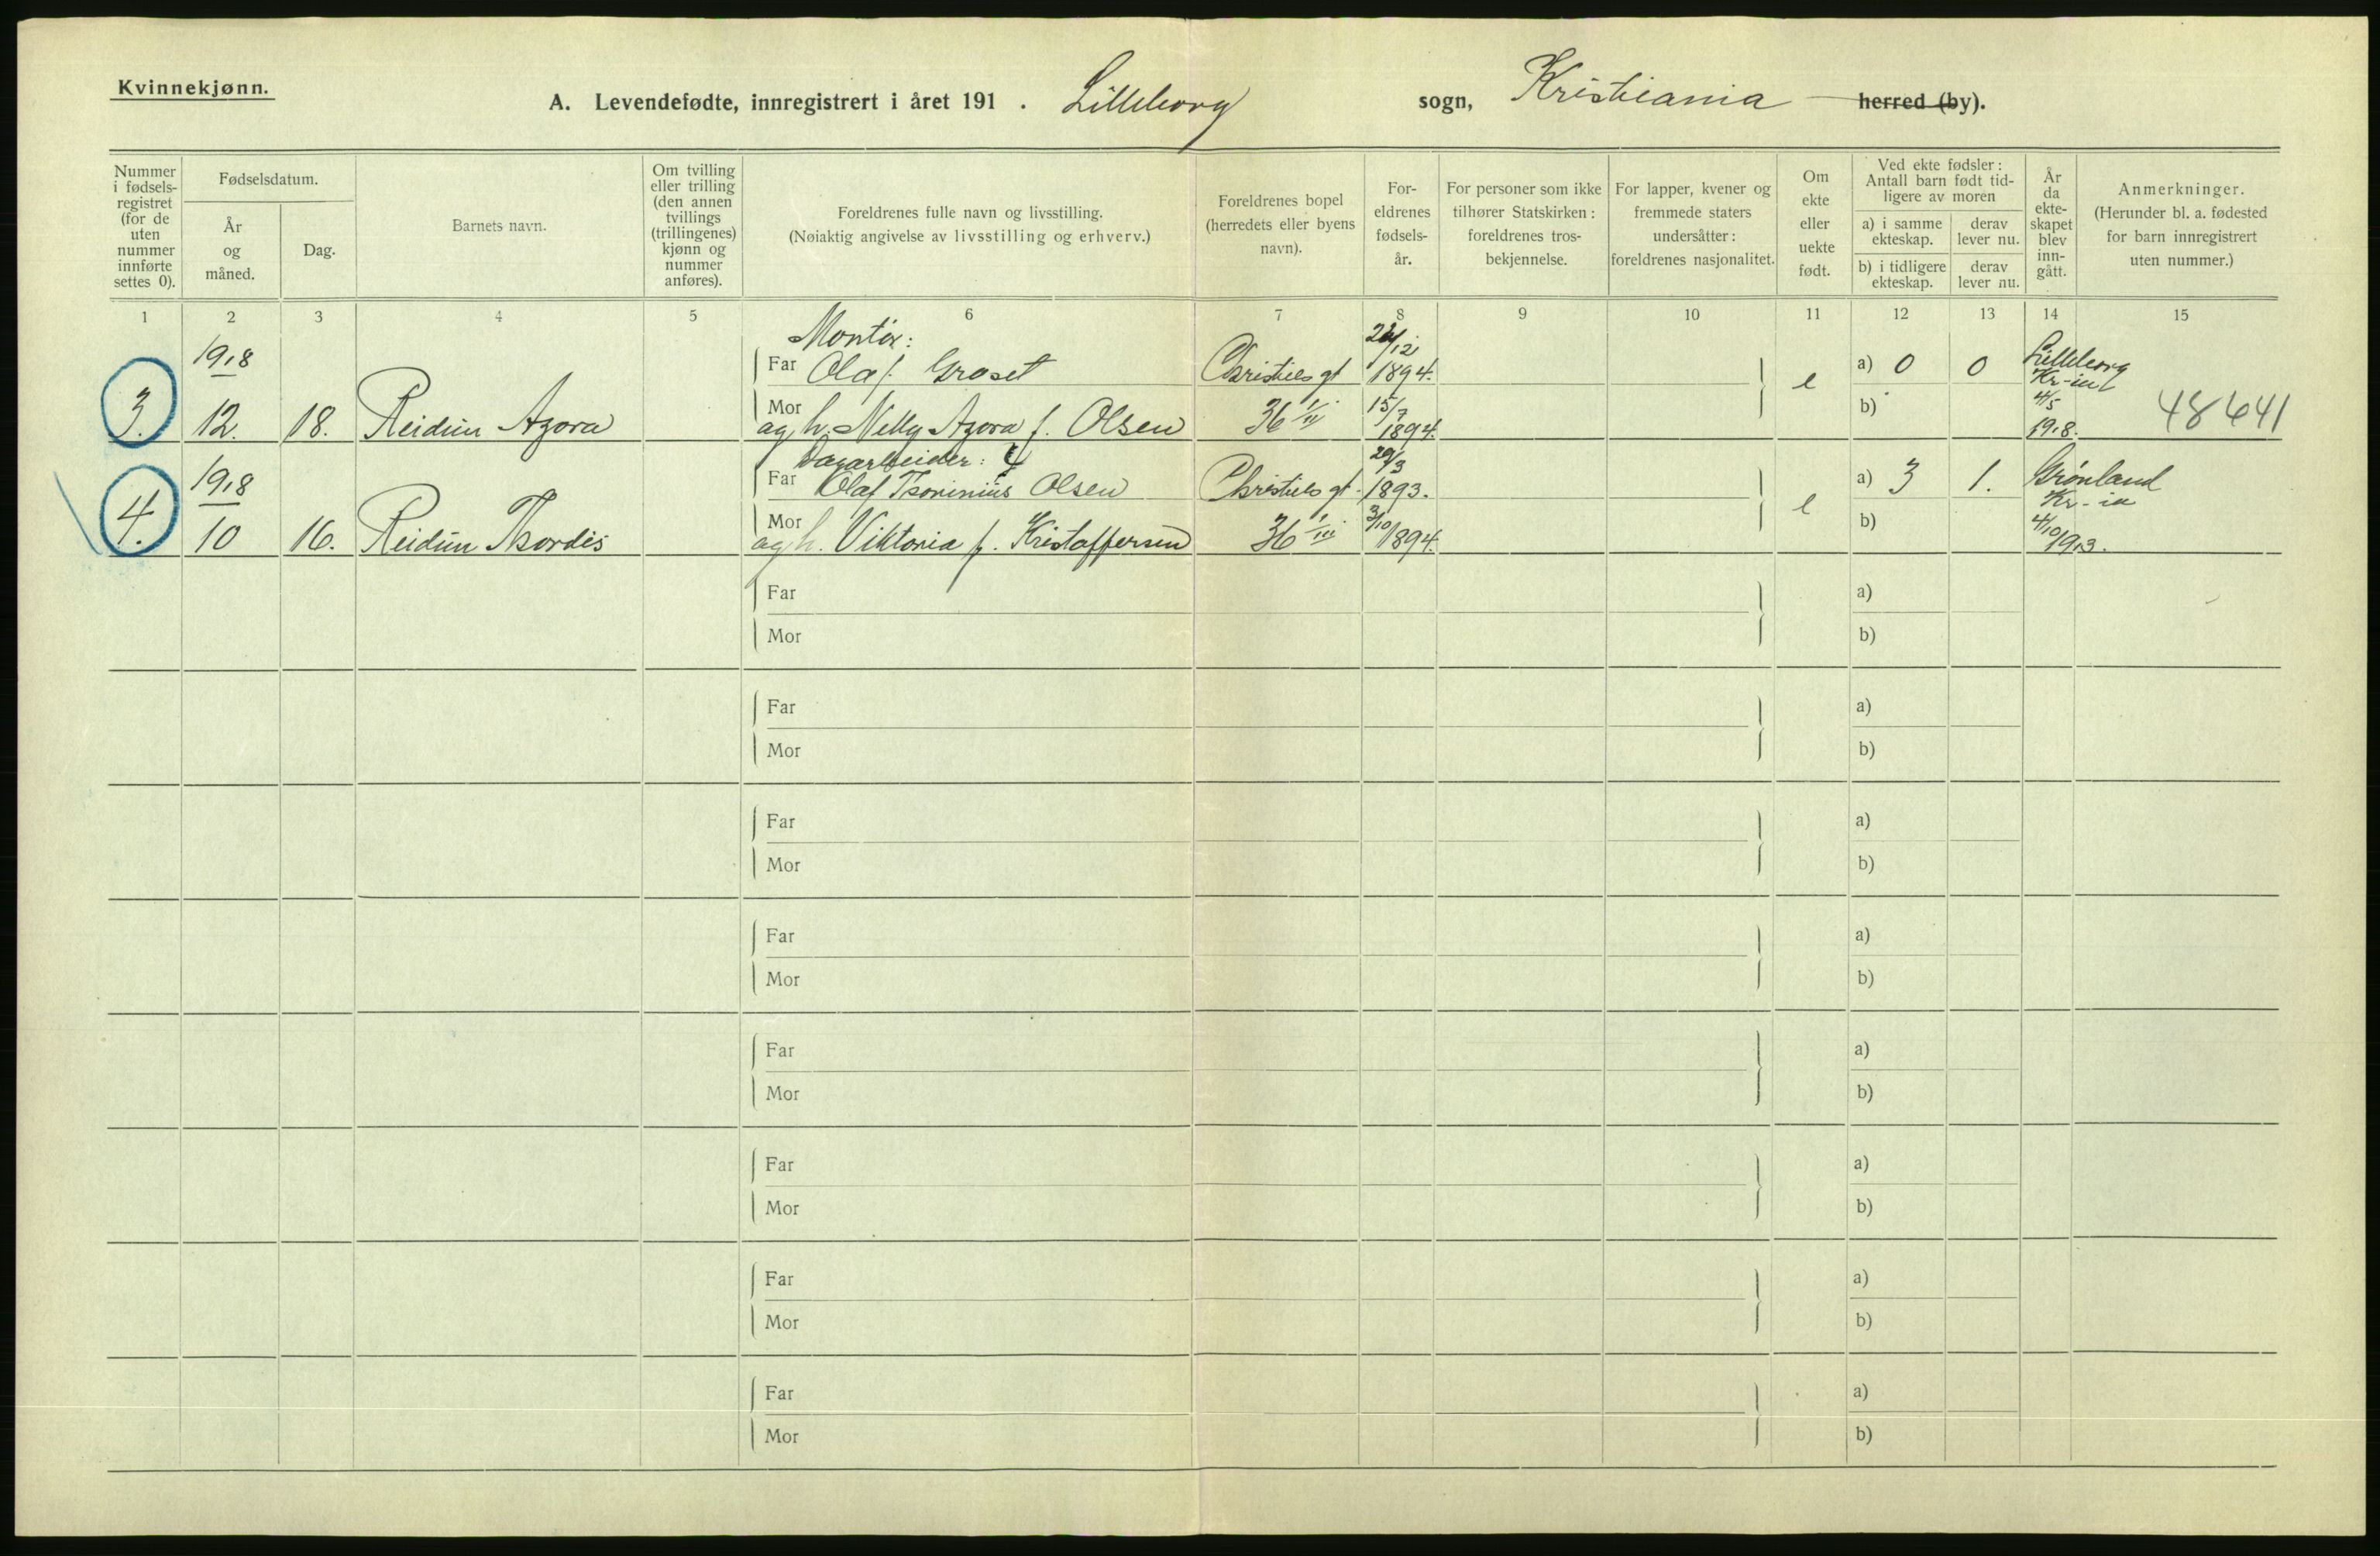 Kvinnekjønn.
A. Levendefødte, innregistrert i året 191 . Lilleborg sogn, Kristiania herred (by).
Nummer i fødsels-registret (for de uten nummer innførte settes 0).
Fødselsdatum.
År og måned.
Dag.
Barnets navn.
Om tvilling eller trilling (den annen tvillings (trillingenes) kjønn og nummer anføres).
Foreldrenes fulle navn og livsstilling.
(Nøiaktig angivelse av livsstilling og erhverv.)
Foreldrenes bopel (herredets eller byens navn).
For-eldrenes fødsels-år.
For personer som ikke tilhører Statskirken: foreldrenes tros-bekjennelse.
For lapper, kvener og fremmede staters undersåtter: foreldrenes nasjonalitet.
Om ekte eller uekte født.
Ved ekte fødsler: Antall barn født tid-ligere av moren
a) i samme ekteskap.
derav lever nu.
b) i tidligere ekteskap.
derav lever nu.
År da ekte-skapet blev inn-gått.
Anmerkninger.
(Herunder bl. a. fødested for barn innregistrert uten nummer.)
1 2 3 4 5 6 7 8 9 10 11 12 13 14 15
Montør:
1918 Far Olaf Graset Christies gt 1894. e a) 0 0 Lilleborg Kr-ia
3. 12. 18. Reidun Azora Mor og h. Nelly Azora f. Olsen 36 1/II 15/7 1894. b) 4/5 1918. 48641
Dagarbeider:
1918 Far Olaf Thorinius Olsen Christies gt. 29/3 1893. e a) 3 1. Grønland Kr-ia
4. 10 16. Reidun Thordis Mor og h. Viktoria f. Kristoffersen 36 1/III 3/10 1894. b) 4/10 1913.
Far a)
Mor b)
Far a)
Mor b)
Far a)
Mor b)
Far a)
Mor b)
Far a)
Mor b)
Far a)
Mor b)
Far a)
Mor b)
Far a)
Mor b)